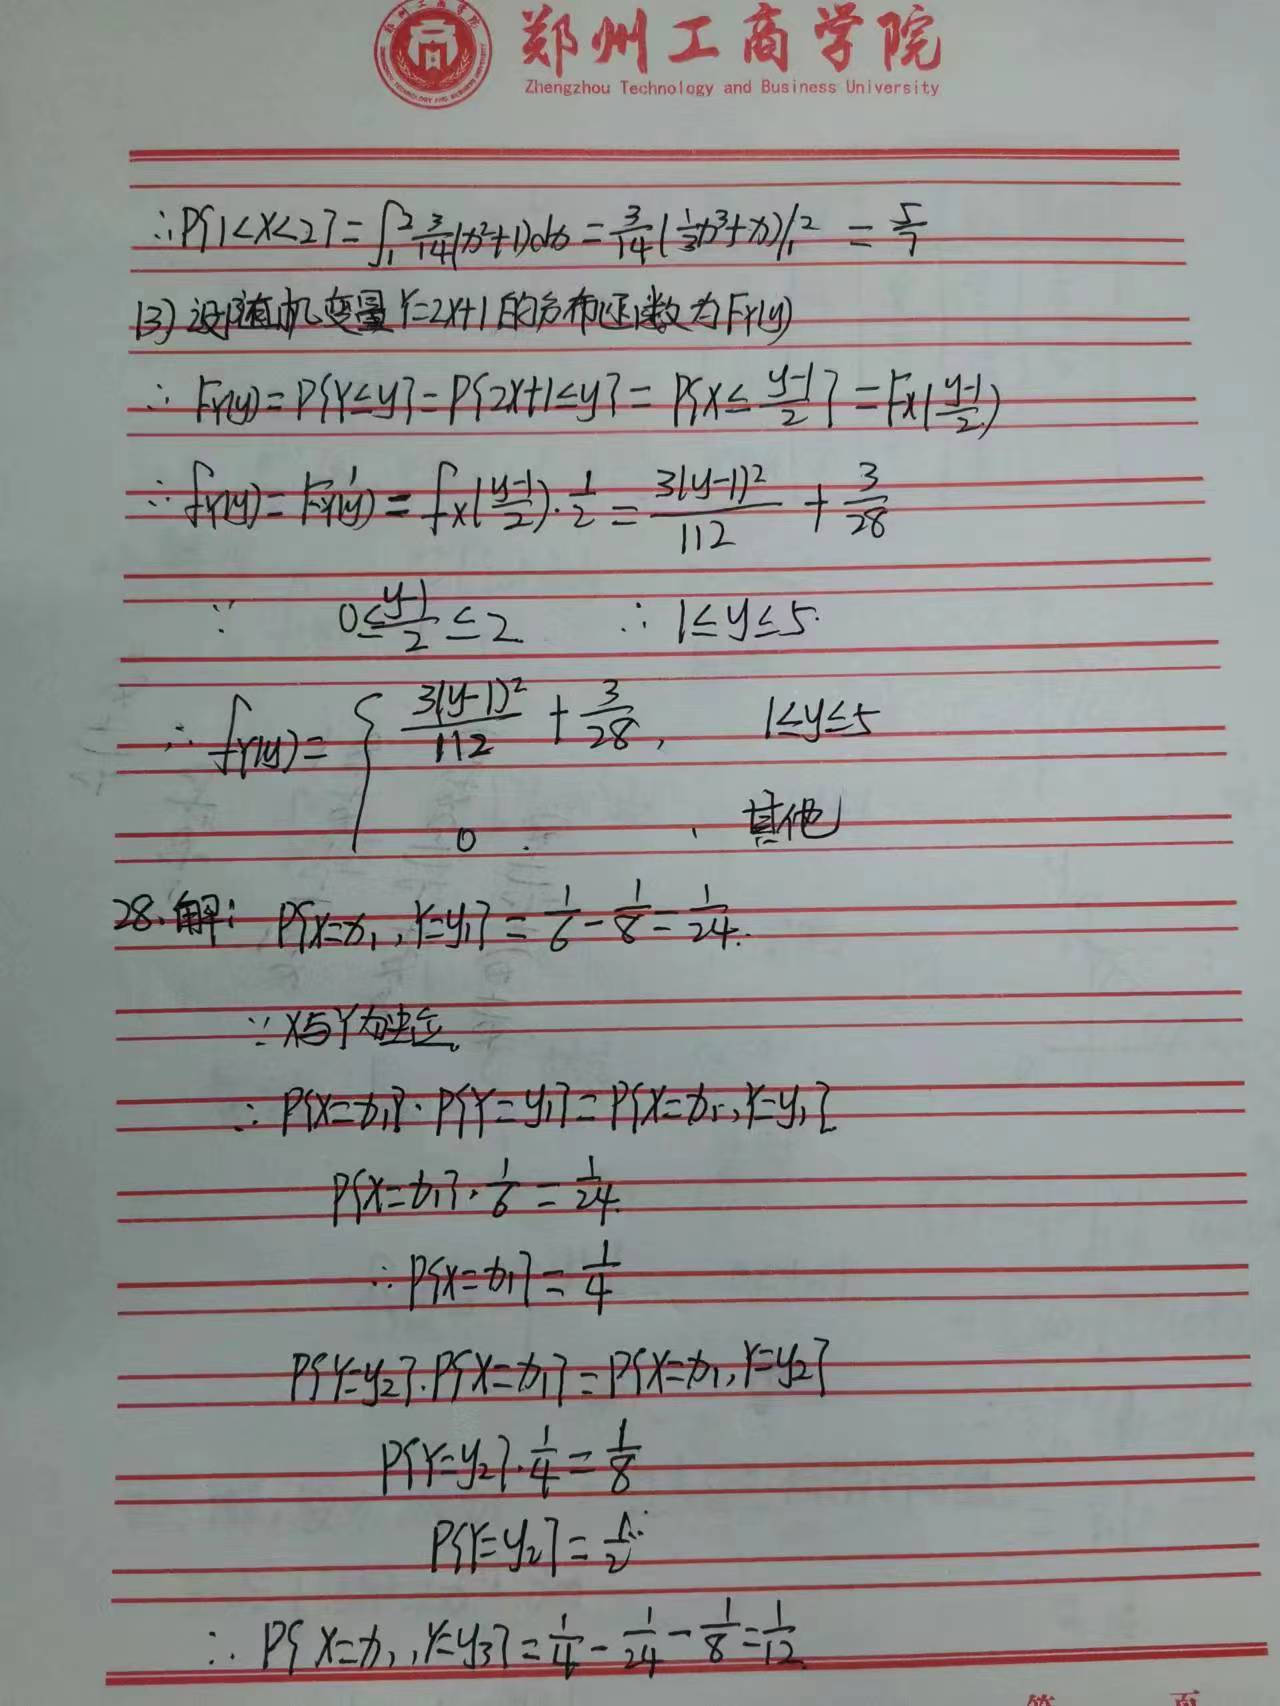 郑州工商学院
Zhengzhou Technology and Business University
∴P{1<X<2}=∫₁² 3/14(x²+1)dx=3/14(1/3x³+x)|₁²=5/7
(3)设随机变量Y=2X+1的分布函数为FY(y)
∴ FY(y)=P{Y≤y}=P{2X+1≤y}=P{X≤(y-1)/2}=FX((y-1)/2)
∴ fY(y)=FY'(y)=fX((y-1)/2)·1/2=3(y-1)²/112+3/28
∵ 0≤(y-1)/2≤2 ∴ 1≤y≤5.
∴ fY(y)={ 3(y-1)²/112+3/28, 1≤y≤5
0 , 其他
28.解: P{X=x₁,Y=y₁}=1/6-1/8=1/24.
∵X与Y为独立
∴ P{X=x₁}·P{Y=y₁}=P{X=x₁,Y=y₁}
P{X=x₁}·1/6=1/24
∴P{X=x₁}=1/4
P{Y=y₂}·P{X=x₁}=P{X=x₁,Y=y₂}
P{Y=y₂}·1/4=1/8
P{Y=y₂}=1/2
∴ P{X=x₁,Y=y₃}=1/4-1/24-1/8=1/12
第 页